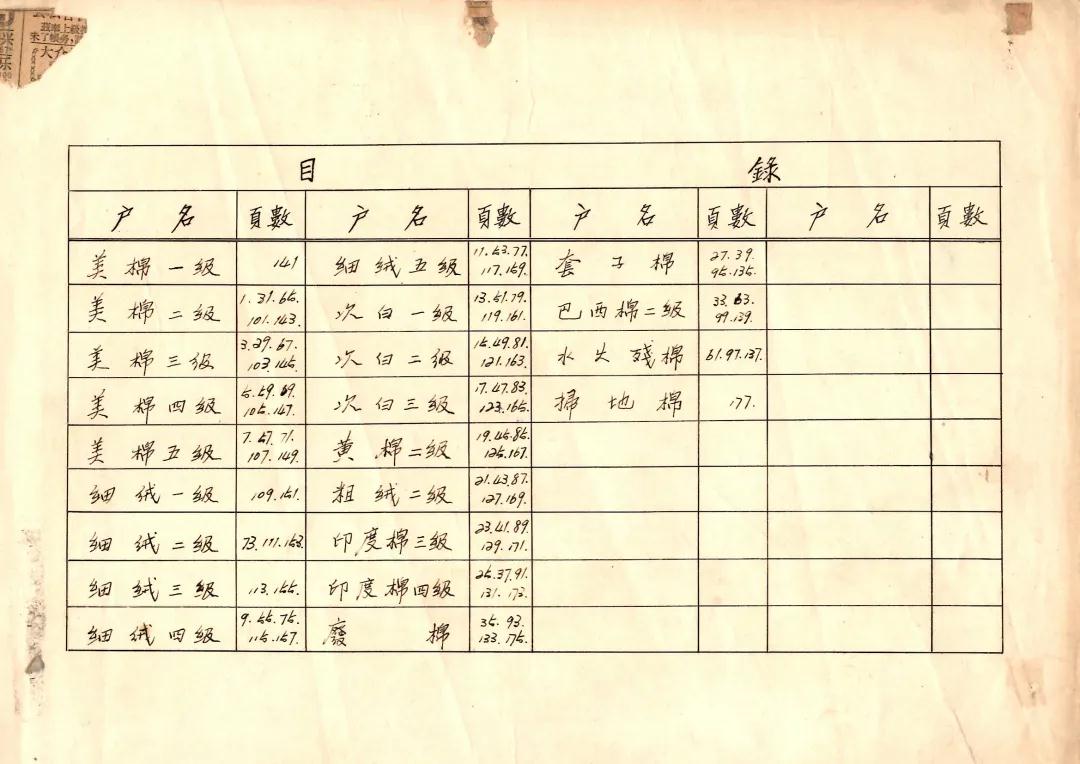 茲奉上級
大介
目 錄
户名 頁數 户名 頁數 户名 頁數 户名 頁數
美棉一级 141 细绒五级 11.53.77. 117.159. 套子棉 27.39. 95.135.
美棉二级 1.31.65. 101.143. 次白一级 13.51.79. 119.161. 巴西棉二级 33.63. 99.139.
美棉三级 3.29.67. 103.145. 次白二级 15.49.81. 121.163. 水火殘棉 61.97.137.
美棉四级 5.59.69. 105.147. 次白三级 17.47.83. 123.165. 掃地棉 177.
美棉五级 7.57.71. 107.149. 黄棉二级 19.45.85. 125.167.
细绒一级 109.151. 粗绒二级 21.43.87. 127.169.
细绒二级 73.111.153. 印度棉三级 23.41.89. 129.171.
细绒三级 113.155. 印度棉四级 25.37.91. 131.173.
细绒四级 9.55.75. 115.157. 廢棉 35.93. 133.175.